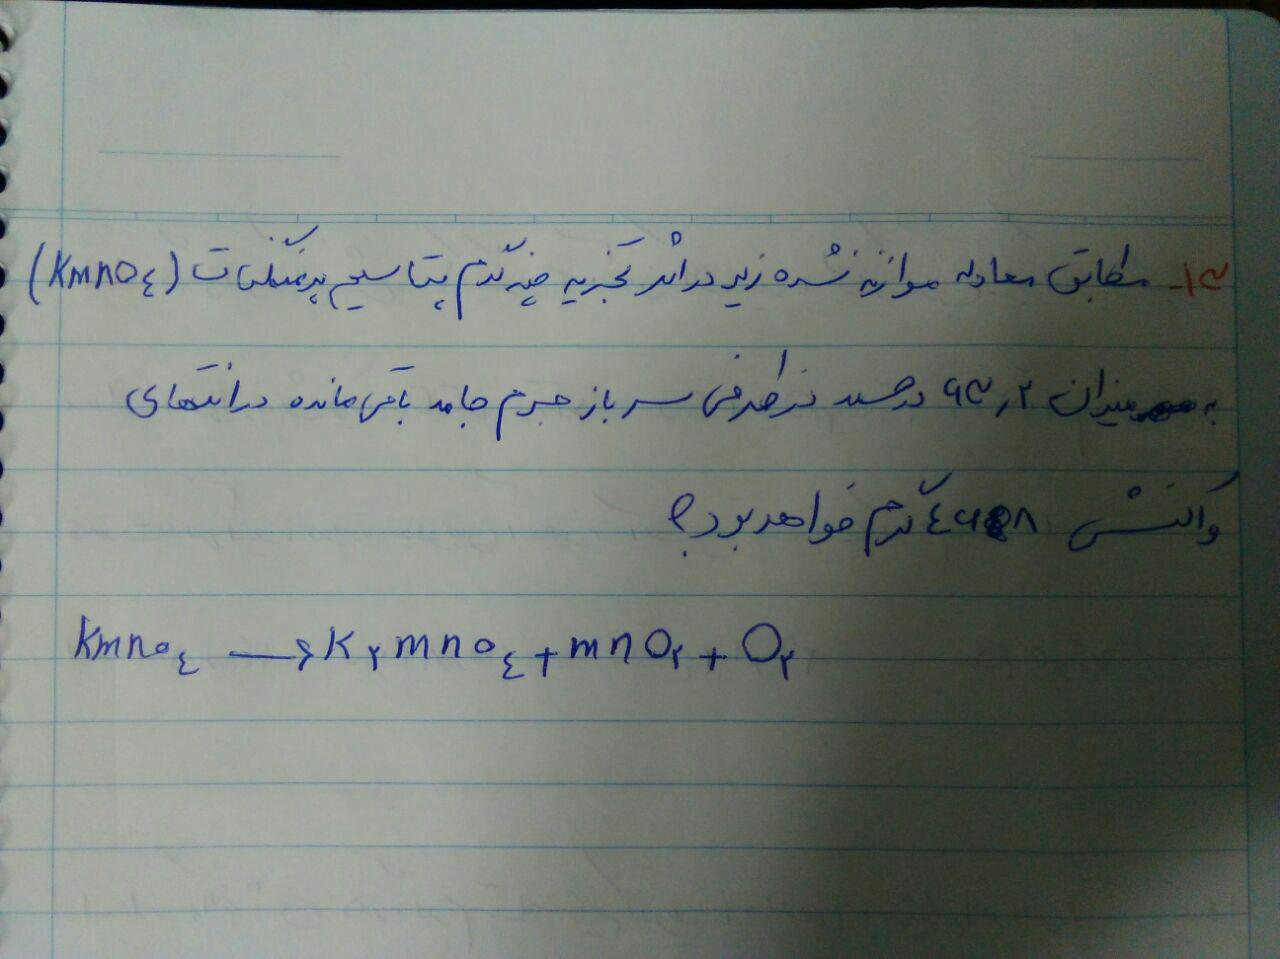 ۱۳- مطابق معادله موازنه نشده زیر در اثر تجزیه چند گرم پتاسیم پرمنگنات (KmnO٤)
به میزان ۶۳٫۲ درصد در ظرفی سر باز جرم جامد باقی مانده در انتهای
واکنش ٤۶۸ گرم خواهد بود؟
KmnO٤ → K۲mnO٤ + mnO۲ + O۲